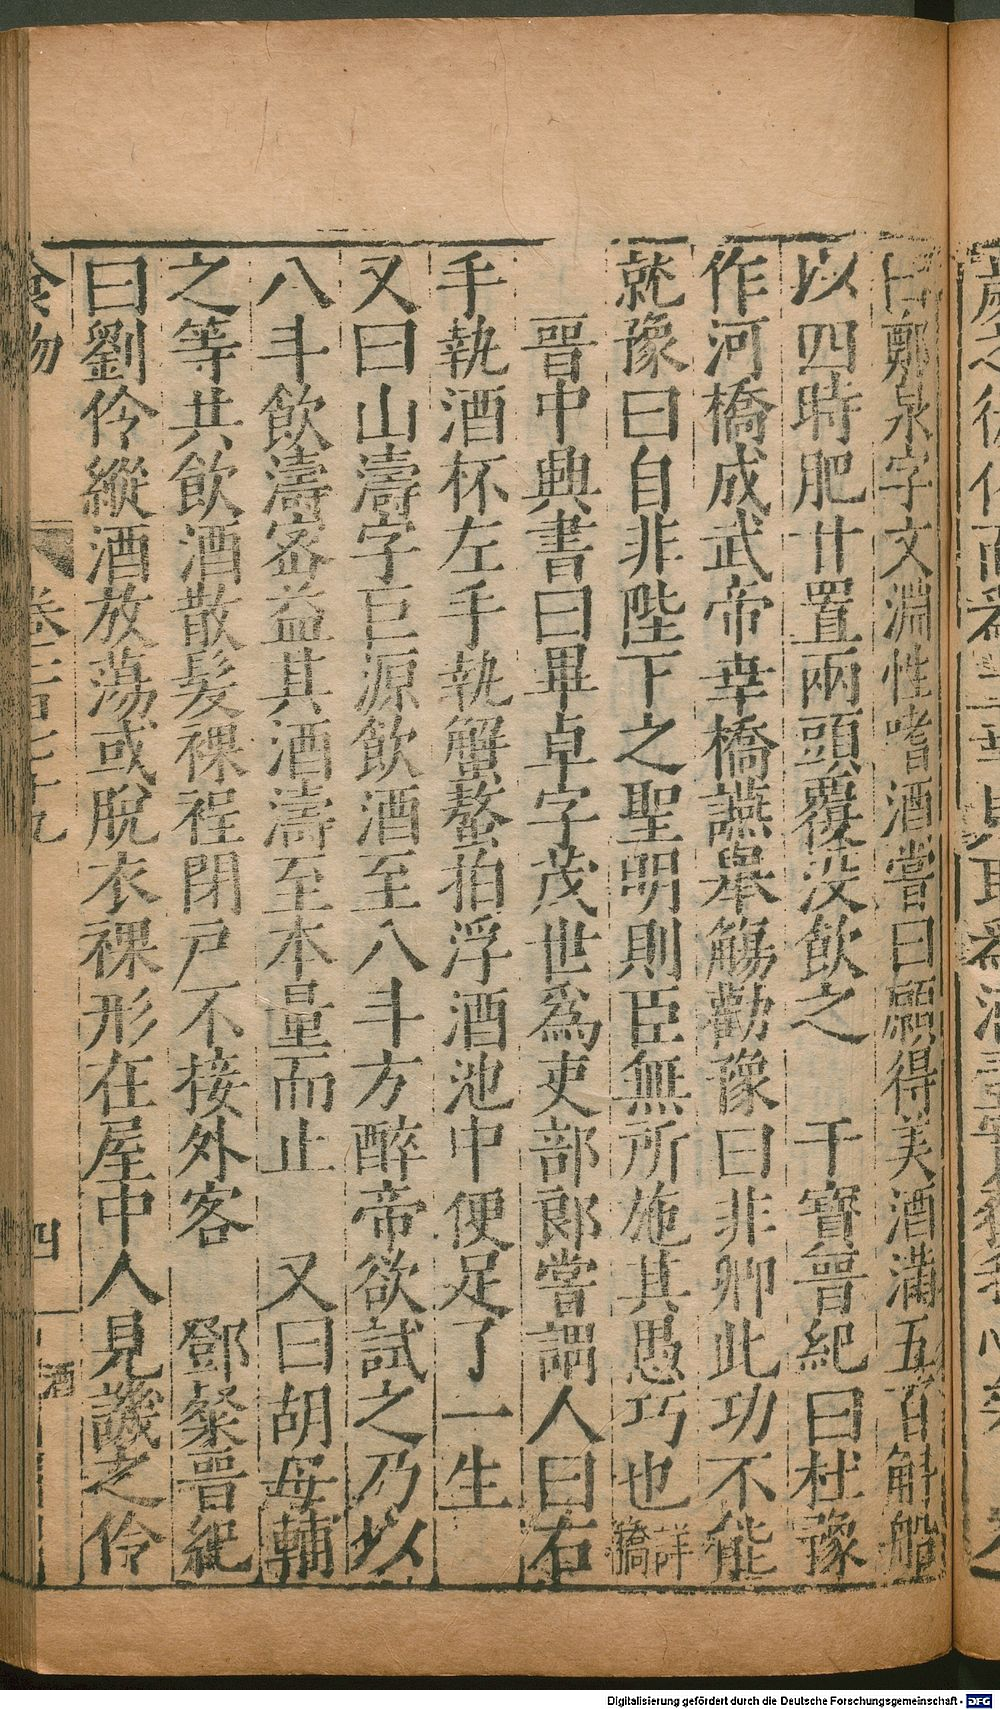 曰鄭泉字文淵性嗜酒嘗曰願得美酒滿五百斛船
以四時肥甘置兩頭覆没飲之　干寳晉紀曰杜豫
作河橋成武帝幸橋讌舉觴勸豫曰非卿此功不能
就豫曰自非陛下之聖明則臣無所施其愚巧也詳橋
晉中興書曰畢卓字茂世爲吏部郎嘗謂人曰右
手執酒杯左手執蟹螯拍浮酒池中便足了一生
又曰山濤字巨源飲酒至八斗方醉帝欲試之乃以
八斗飲濤密益其酒濤至本量而止　又曰胡母輔
之等共飲酒散髪裸裎閉戸不接外客　鄧粲晉紀
曰劉伶縱酒放蕩或脫衣裸形在屋中人見譏之伶
食物　卷　四　酒
Digitalisierung gefördert durch die Deutsche Forschungsgemeinschaft - DFG